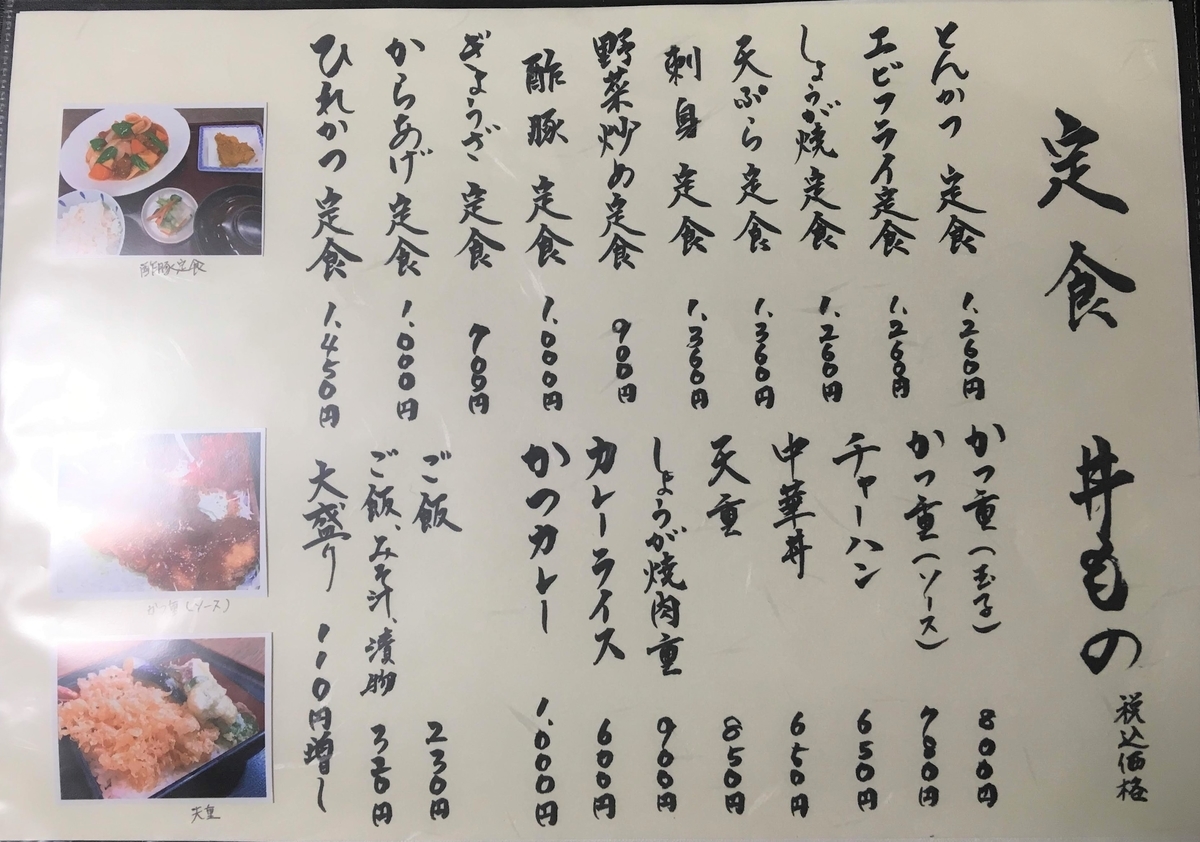 定食 丼もの 税込価格
とんかつ 定食 1,260円
エビフライ定食 1,260円
しょうが焼定食 1,260円
天ぷら定食 1,360円
刺身 定食 1,360円
野菜炒め定食 900円
酢豚 定食 1,000円
ぎょうざ 定食 700円
からあげ 定食 1,000円
ひれかつ 定食 1,450円
かつ重(玉子) 800円
かつ重(ソース) 780円
チャーハン 650円
中華丼 650円
天重 850円
しょうが焼肉重 900円
カレーライス 600円
かつカレー 1,000円
ご飯 230円
ご飯、みそ汁、漬物
大盛り 110円増し
酢豚定食
かつ重(ソース)
天重